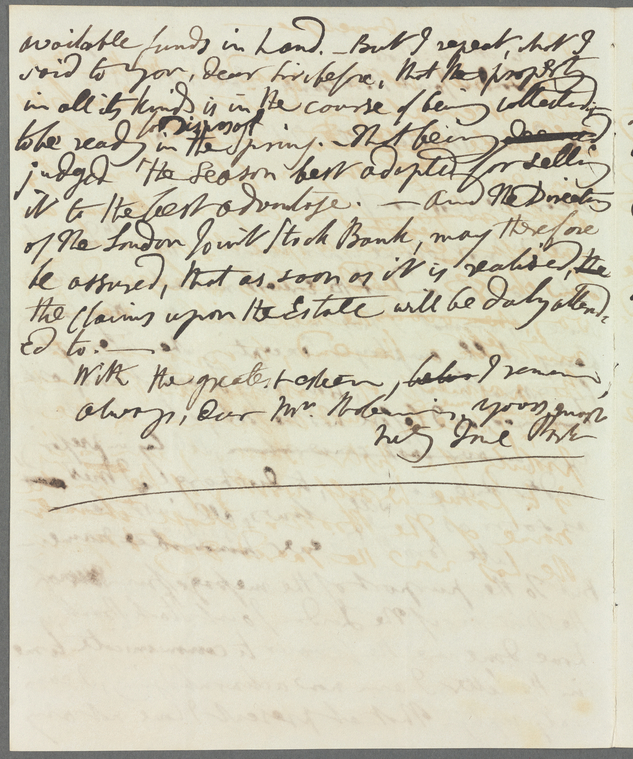 available funds in hand. — But I repeat, what I
said to you, dear Sir before, that the property
in all its kinds is in the course of being collected,
for disposal
to be ready in the Spring. — that being
judged the Season best adapted for selling
it to the best advantage. — and the Directors
of the London Joint Stock Bank, may therefore
be assured, that as soon as it is realised, the
the Claims upon the Estate will be duly attend-
ed to. —
With the greatest esteem, I remain,
always, Dear Mr. yours most
truly